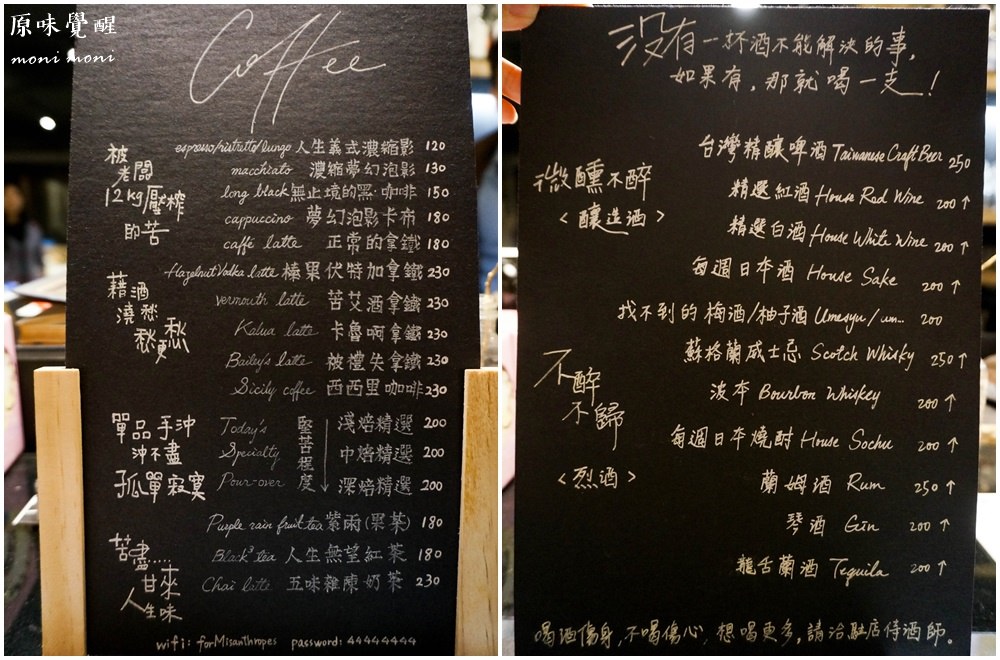 原味覺醒
moni moni
Coffee
被老闆
12kg壓榨
即苦
espresso/ristretto/lungo 人生義式濃縮影 120
macchiato 濃縮夢幻泡影 130
long black 無止境的黑·咖啡 150
cappuccino 夢幻泡影卡布 180
caffè latte 正常的拿鐵 180
藉酒
澆愁
愁更愁
Hazelnut Vodka latte 榛果伏特加拿鐵 230
vermouth latte 苦艾酒拿鐵 230
Kalua latte 卡魯啊拿鐵 230
Bailey's latte 被禮失拿鐵 230
Sicily coffee 西西里咖啡 230
單品手沖
沖不盡
孤單寂寞
堅苦程度
Today's 淺焙精選 200
Specialty 中焙精選 200
Pour-over 深焙精選 200
苦盡....
甘來
人生味
Purple rain fruit tea 紫雨(果茶) 180
Black³ tea 人生無望紅茶 180
Chai latte 五味雜陳奶茶 230
wifi: forMisanthropes password: 44444444
沒有一杯酒不能解決的事，
如果有，那就喝一支！
微醺不醉
<釀造酒>
台灣精釀啤酒 Taiwanese Craft Beer 250
精選紅酒 House Red Wine 200↑
精選白酒 House White Wine 200↑
每週日本酒 House Sake 200↑
找不到的梅酒/柚子酒 Umesyu/un... 200
不醉
不歸
<烈酒>
蘇格蘭威士忌 Scotch Whisky 250↑
波本 Bourbon Whiskey 200↑
每週日本燒酎 House Sochu 200↑
蘭姆酒 Rum 250↑
琴酒 Gin 200↑
龍舌蘭酒 Tequila 200↑
喝酒傷身，不喝傷心，想喝更多，請洽駐店侍酒師。